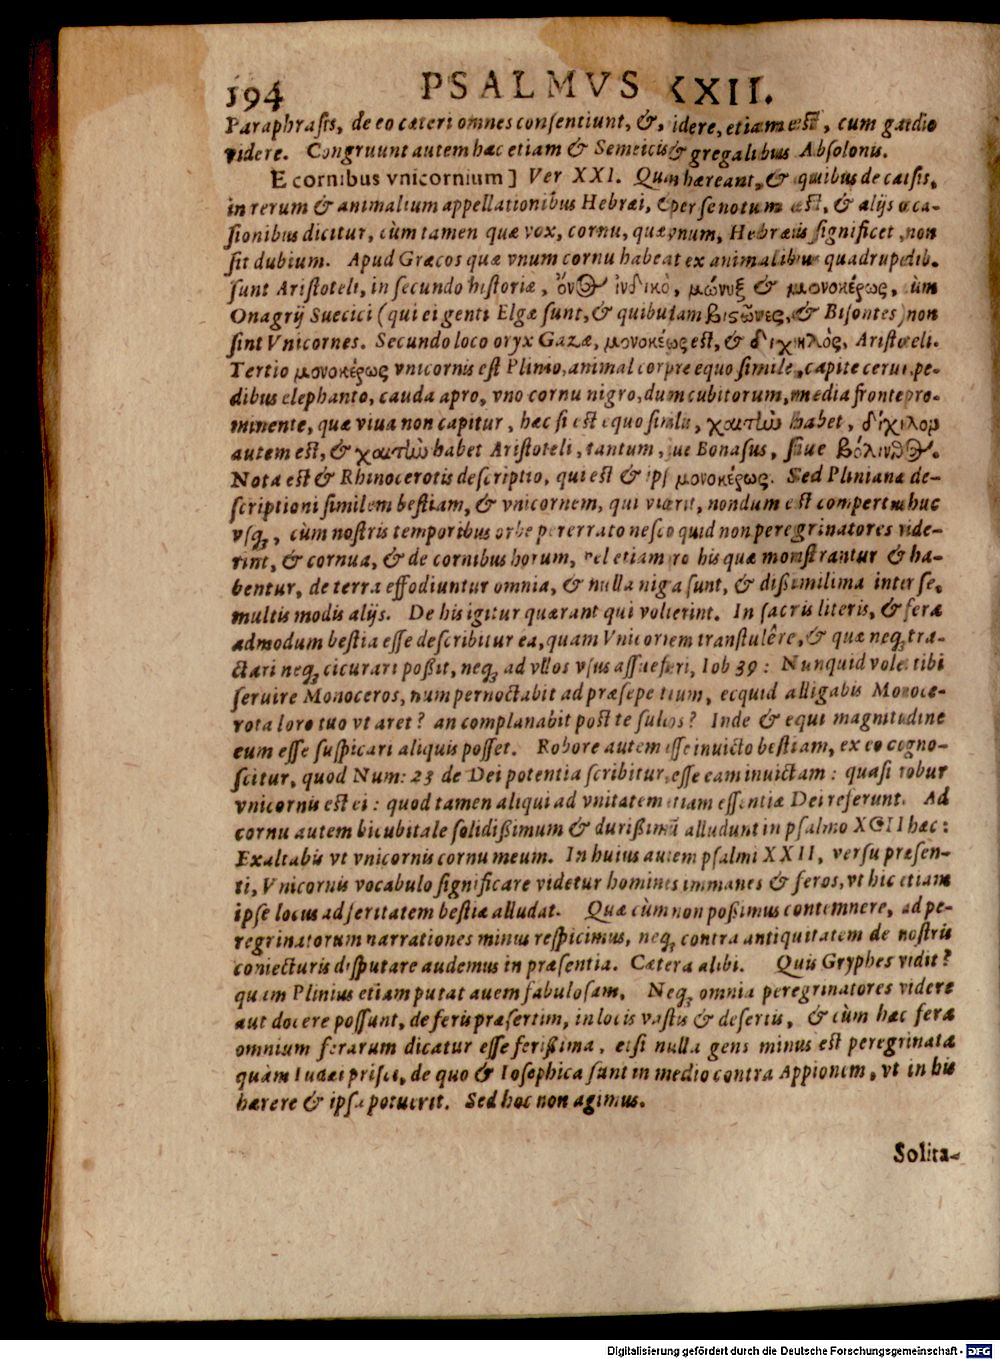 194 PSALMVS XXII.
Paraphrasis, de eo cæteri omnes consentiunt, &, idere, etiam est, cum gaudio
videre. Congruunt autem hæc etiam & Semeiciis & gregalibus Absolonis.
E cornibus vnicornium] Ver XXI. Quam hæreant, & quibus de causis,
in rerum & animalium appellationibus Hebræi, & per se notum est, & alijs occa-
sionibus dicitur, cùm tamen quæ vox, cornu, quæ vnum, Hebræis significet, non
sit dubium. Apud Græcos quæ vnum cornu habeat ex animalibus quadrupedib.
sunt Aristoteli, in secundo historiæ, ὄν@ ἰνδικὸ, μώνυξ & μονοκέρως, ùm
Onagrij Suecici (qui ei genti Elgæ sunt, & quibusdam βισῶνες, & Bisontes) non
sint Vnicornes. Secundo loco oryx Gazæ, μονοκέως est, & διχηλὸς, Aristoteli.
Tertio μονοκέρως vnicornis est Plinio, animal corpre equo simile, capite cerui, pe-
dibus elephanto, cauda apro, vno cornu nigro, dum cubitorum, media fronte pro-
minente, quæ viua non capitur, hæc si est equo similis, χαιτίω habet, δίχιλομ
autem est, & χαιτίω habet Aristoteli, tantum, ue Bonasus, siue βόλινθ@.
Nota est & Rhinocerotis descriptio, qui est & ips μονοκέρως. Sed Plinianæ de-
scriptioni similem bestiam, & vnicornem, qui viderit, nondum est compertum huc
vsq;, cùm nostris temporibus orbe pererrato nescio quid non peregrinatores vide-
rint, & cornua, & de cornibus horum, vel etiam pro his quæ monstrantur & ha-
bentur, de terra effodiuntur omnia, & nulla nigra sunt, & dißimilima inter se,
multis modis alijs. De his igitur quærant qui voluerint. In sacris literis, & fera
admodum bestia esse describitur ea, quam Vnicornem transtulêre, & quæ neq; tra-
ctari neq; cicurari poßit, neq; ad vllos vsus assuefieri, Iob 39: Nunquid volet tibi
seruire Monoceros, num pernoctabit ad præsepe tuum, ecquid alligabis Monoce-
rota loro tuo vt aret? an complanabit post te sulcos? Inde & equi magnitudine
eum esse suspicari aliquis posset. Robore autem esse inuicto bestiam, ex eo cogno-
scitur, quod Num: 23 de Dei potentia scribitur, esse eam inuictam: quasi robur
vnicornis est ei: quod tamen aliqui ad vnitatem etiam essentiæ Dei referunt. Ad
cornu autem bicubitale solidißimum & durißimũ alludunt in psalmo XCII hæc:
Exaltabis vt vnicornis cornu meum. In huius autem psalmi XXII, versu præsen-
ti, Vnicornis vocabulo significare videtur homines immanes & feros, vt hic etiam
ipse locus ad feritatem bestiæ alludat. Quæ cùm non poßimus contemnere, ad pe-
regrinatorum narrationes minus respicimus, neq; contra antiquitatem de nostris
coniecturis disputare audemus in præsentia. Cætera alibi. Quis Gryphes vidit?
quam Plinius etiam putat auem fabulosam. Neq; omnia peregrinatores videre
aut docere possunt, de feris præsertim, in locis vastis & desertis, & cùm hæc fera
omnium ferarum dicatur esse ferißima, etsi nulla gens minus est peregrinata
quàm Iudæi prisci, de quo & Iosephica sunt in medio contra Appionem, vt in his
hærere & ipsa potuerit. Sed hoc non agimus.
Solita-
Digitalisierung gefördert durch die Deutsche Forschungsgemeinschaft - DFG